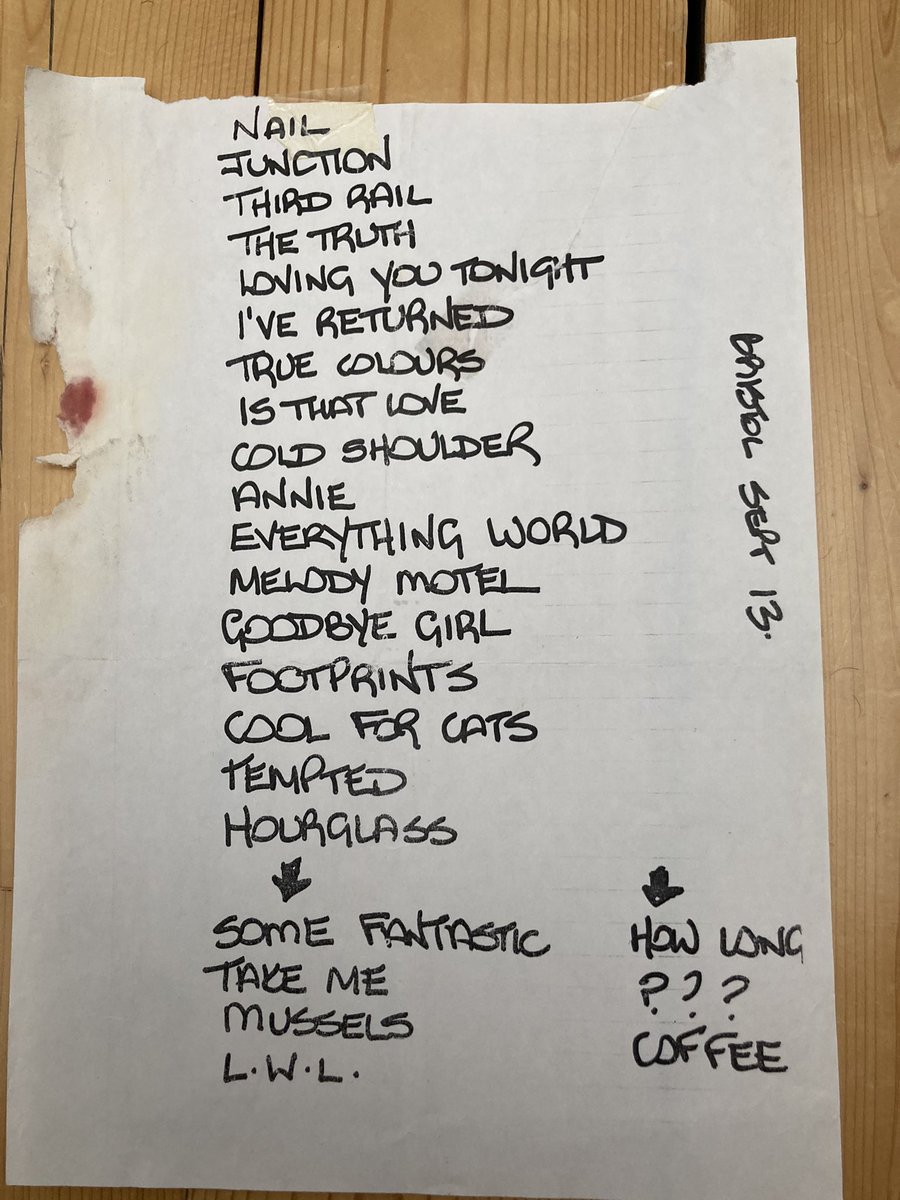 NAIL
JUNCTION
THIRD RAIL
THE TRUTH
LOVING YOU TONIGHT
I'VE RETURNED
TRUE COLOURS
IS THAT LOVE
COLD SHOULDER
ANNIE
EVERYTHING WORLD
MELODY MOTEL
GOODBYE GIRL
FOOTPRINTS
COOL FOR CATS
TEMPTED
HOURGLASS
SOME FANTASTIC
TAKE ME
MUSSELS
L.W.L.
HOW LONG
? ? ?
COFFEE
BRISTOL SEPT 13.